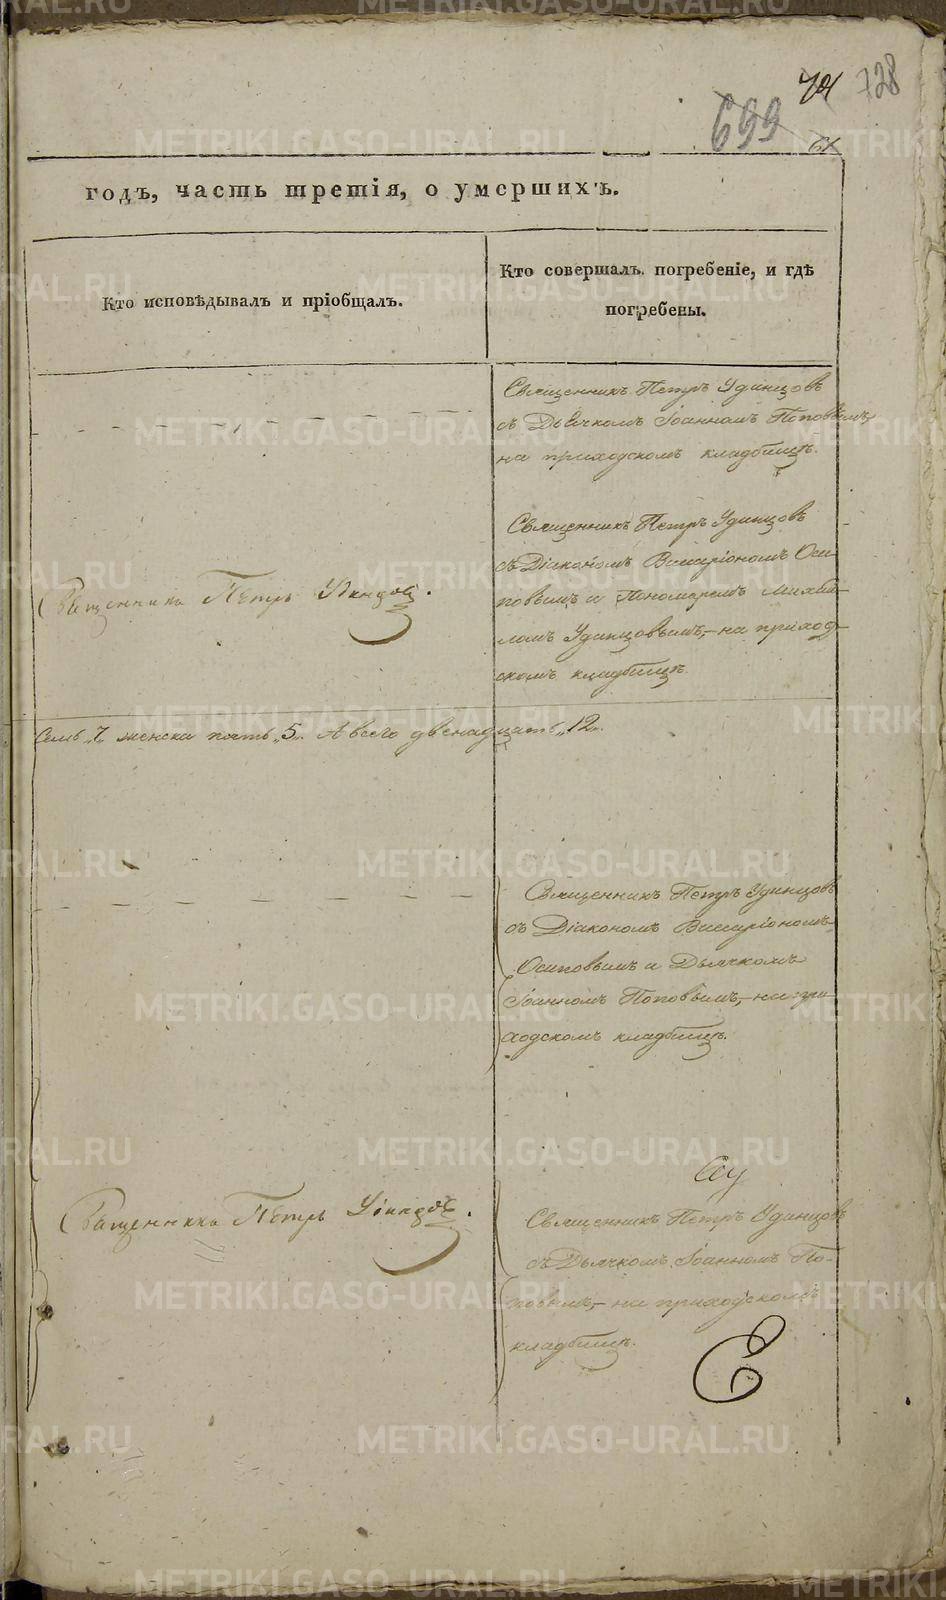 74 728
699
годъ, часть третія, о умершихъ.
Кто исповѣдывалъ и пріобщалъ.
Кто совершалъ погребеніе, и гдѣ
погребены.
Священникъ Петръ Удинцовъ
съ Дьячкомъ Іоанномъ Поповымъ,
на приходскомъ кладбищѣ.
Священникъ Петръ Удинцовъ
съ Діакономъ Виссаріономъ Оси-
повымъ и Пономаремъ Михаи-
ломъ Удинцовымъ,- на приход-
скомъ кладбищѣ.
Священникъ Петръ Удинцовъ.
Семь „7„ женска пять „5„. А всего двенадцать „12„.
Священникъ Петръ Удинцовъ
съ Діакономъ Виссаріономъ
Осиповымъ и Дьячкомъ
Іоанномъ Поповымъ,- на при-
ходскомъ кладбищѣ.
Священникъ Петръ Удинцовъ.
Священникъ Петръ Удинцовъ
съ Дьячкомъ Іоанномъ По-
повымъ,- на приходскомъ
кладбищѣ.
METRIKI.GASO-URAL.RU